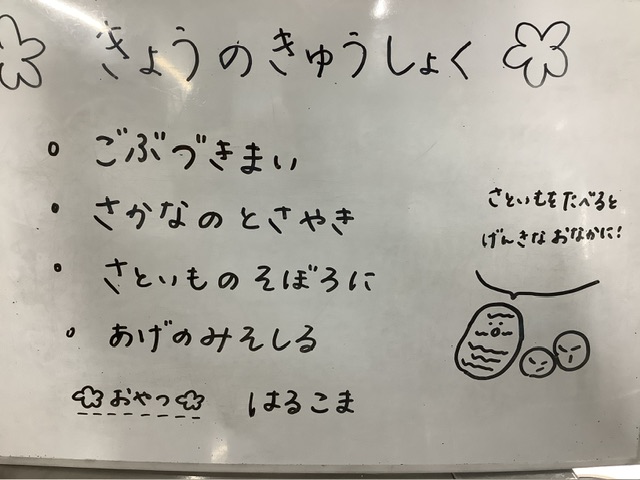 きょうのきゅうしょく
ごぶづきまい
さかなのとさやき
さといものそぼろに
あげのみそしる
おやつ はるこま
さといもをたべると
げんきなおなかに!